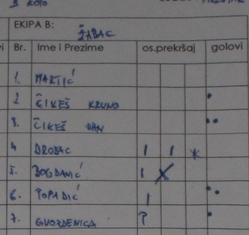 EKIPA B:
ŽABAC
Br. Ime i Prezime os.prekršaj golovi
1. MARTIĆ
2. ČIKEŠ KRUNO
3. ČIKEŠ
4 DROBAC I I *
5. BOGDANIĆ I X
6. TOPADIĆ I
7. GVOZDENICA